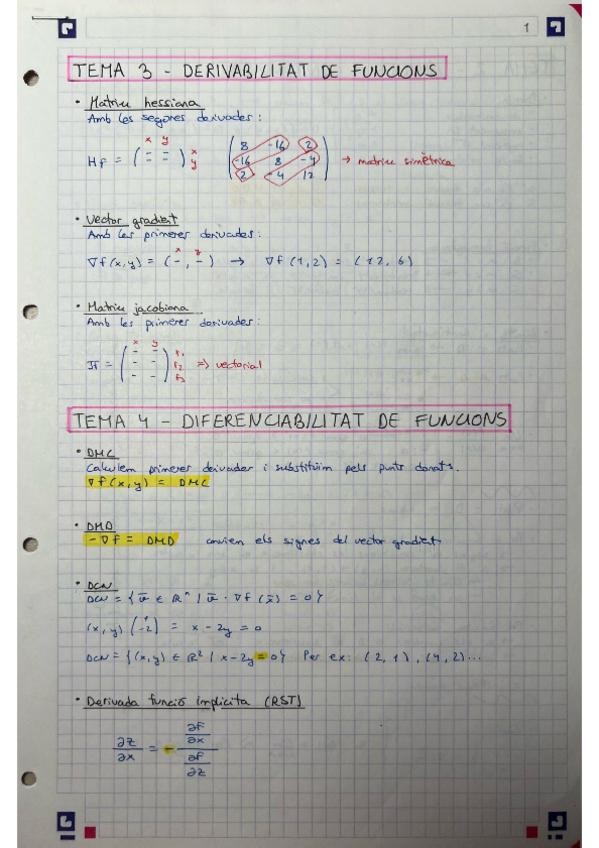 1
TEMA 3 - DERIVABILITAT DE FUNCIONS
• Matriu hessiana
Amb les segones derivades:
x y
Hf = ( - - ) x ( 8 -16 2 )
( - - ) y ( -16 8 -4 ) → matriu simètrica
( 2 -4 12 )
• Vector gradient
Amb les primeres derivades:
x y
∇f(x,y) = ( - , - ) → ∇f(1,2) = (12, 6)
• Matriu jacobiana
Amb les primeres derivades:
x y
( - - ) F1
Jf = ( - - ) F2 => vectorial
( - - ) F3
TEMA 4 - DIFERENCIABILITAT DE FUNCIONS
• DMC
Calculem primeres derivades i substituïm pels punts donats.
∇f(x,y) = DMC
• DMD
-∇f = DMD canviem els signes del vector gradient
• DCN
DCN = { v̄ ∈ ℝⁿ | v̄ · ∇f(x̄) = 0 }
(x, y) ( 1 -2 ) = x - 2y = 0
DCN = { (x,y) ∈ ℝ² | x - 2y = 0 } Per ex: (2,1), (4,2)...
• Derivada funció implícita (RST)
∂z/∂x = - (∂f/∂x) / (∂f/∂z)